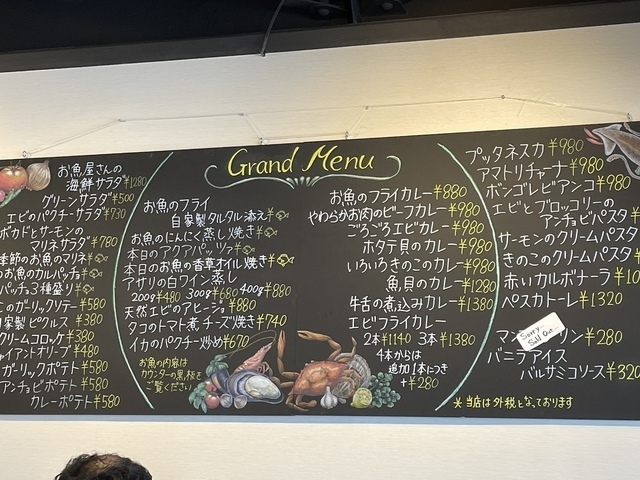 Grand Menu
お魚屋さんの
海鮮サラダ ¥1280
グリーンサラダ ¥500
エビのパクチーサラダ ¥730
ボカドとサーモンの
マリネサラダ ¥780
季節のお魚のマリネ
のお魚のカルパッチョ
パッチョ3種盛り
のガーリックソテー ¥580
家製ピクルス ¥380
クリームコロッケ ¥380
ャイアントオリーブ ¥480
ガーリックポテト ¥580
アンチョビポテト ¥580
カレーポテト ¥580
お魚のフライ
自家製タルタル添え ¥
お魚のにんにく蒸し焼き ¥
本日のアクアパッツァ ¥
本日のお魚の香草オイル焼き ¥
アサリの白ワイン蒸し
200g ¥480 300g ¥680 400g ¥880
天然エビのアヒージョ ¥880
タコのトマト煮チーズ焼き ¥740
イカのパクチー炒め ¥670
お魚の内容は
カウンターの黒板を
ご覧ください
お魚のフライカレー ¥880
やわらかお肉のビーフカレー ¥980
ごろごろエビカレー ¥980
ホタテ貝のカレー ¥980
いろいろきのこカレー ¥980
魚貝のカレー ¥1280
牛舌の煮込みカレー ¥1380
エビフライカレー
2本 ¥1140 3本 ¥1380
4本からは
追加1本につき
+¥280
プッタネスカ ¥980
アマトリチャーナ ¥980
ボンゴレビアンコ ¥980
エビとブロッコリーの
アンチョビパスタ ¥
サーモンのクリームパスタ
きのこのクリームパスタ ¥
赤いカルボナーラ ¥10
ペスカトーレ ¥1320
Sorry...
Sold Out...
マン リン ¥280
バニラアイス
バルサミコソース ¥320
※当店は外税となっております